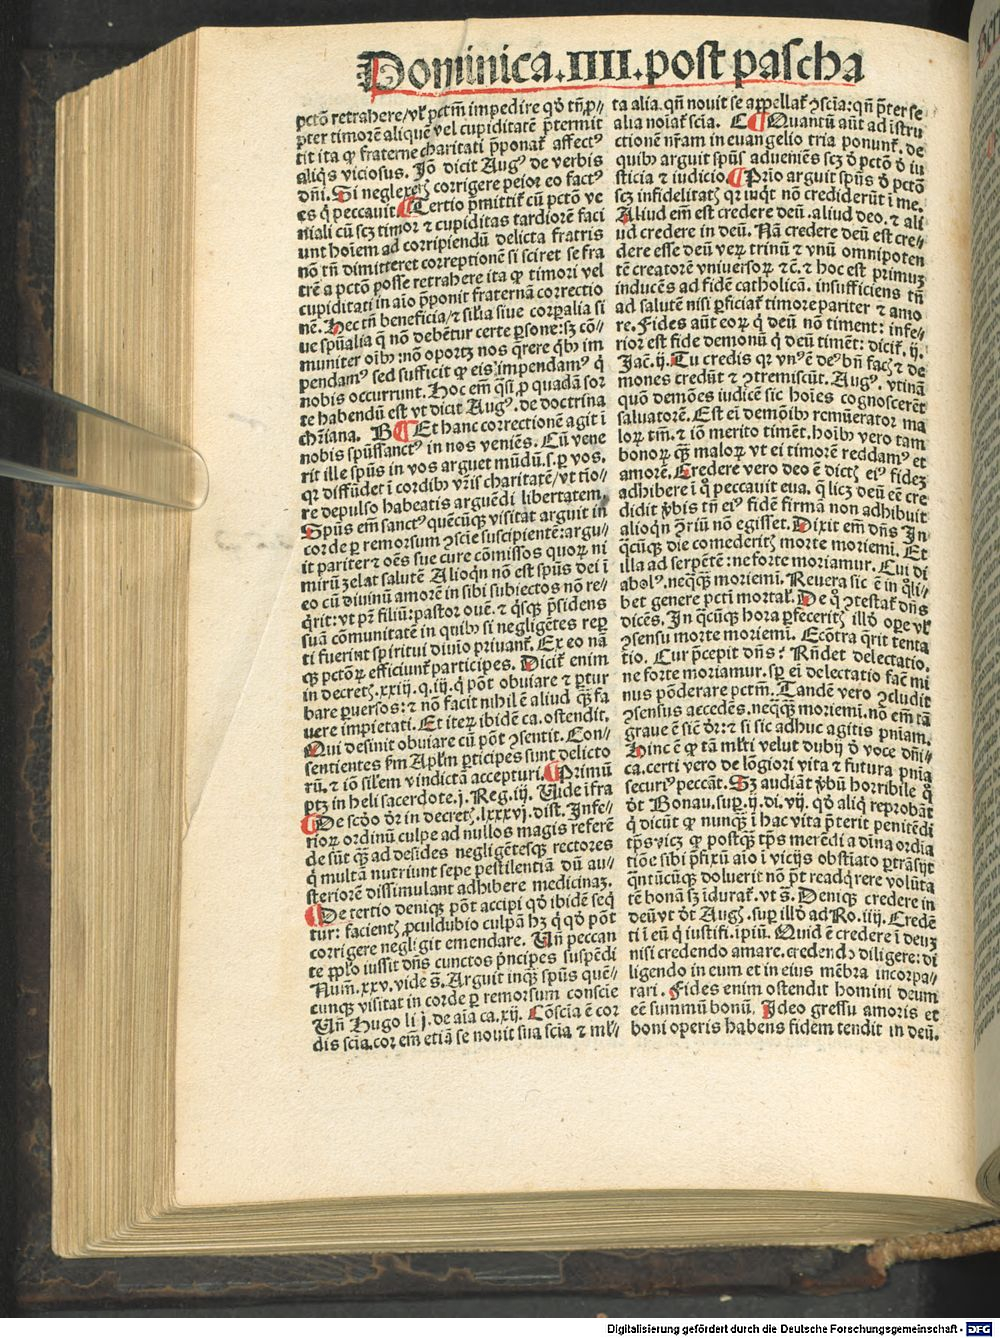 Dominica.IIII.post pascha
pctō retrahere/vł pctm̄ impedire qḋ tn̄ p̱//
pter timorē aliquē vel cupiditatē p̄termit
tit ita ꝙ fraterne charitati p̄ponat᷑ affectꝰ
aliq̇s viciosus. Jō dicit Augꝰ de verbis
dn̄i. Si neglexerꝭ corrigere peior eo factꝰ
es q̇ peccauit. Tertio p̄mittit᷑ cū pctō ve
niali cū scꝫ timor ⁊ cupiditas tardiorē faci
unt hoīem ad corripiendū delicta fratris
nō tn̄ dimitteret correptionē si sciret se fra
trē a pctō posse retrahere ita ꝙ timori vel
cupiditati in aīo p̄ponit fraternā correctio
nē. Hec tn̄ beneficia/⁊ silīa siue corꝑalia si
ue spūalia q̄ nō debētur certe ꝑsone: sꝫ cō/
muniter oībꝰ: nō oportꝫ nos q̄rere q̇bꝰ im
pendamꝰ sed sufficit ꝙ eis impendamꝰ q̇
nobis occurrunt. Hoc em̄ q̄si ꝑ quadā sor
te habendū est vt dicit Augꝰ. de doctrina
chīana. B Et hanc correctionē agit ī
nobis spūssanctꝰ in nos veniēs. Cū vene
rit ille spūs in vos arguet mūdū. s. ꝑ vos.
qꝛ diffūdet ī cordibꝰ vr̄is charitatē/vt tīo/
re depulso habeatis arguēdi libertatem.
Spūs em̄ sanctꝰ quēcūqꝫ visitat arguit in
corde ꝑ remorsum ꝯscīe suscipientē: argu/
it pariter ⁊ oēs sue cure cōmissos quoꝝ ni
mirū zelat salutē Alioqn̄ nō est spūs dei ī
eo cū divinū amorē in sibi subiectos nō re/
q̇rit: vt pr̄ filiū: pastor ouē. ⁊ q̇sqꝫ p̄sidens
suā cōmunitatē in quibꝰ si negligētes reꝑ
ti fuerint spiritui diuīo priuant᷑. Ex eo nā
qꝫ pctōꝝ efficiunt᷑ participes. Dicit᷑ enim
in decretꝭ. xxiij. q. iij. q̇ pōt obuiare ⁊ ꝑtur
bare ꝑuersos: ⁊ nō facit nihil ē aliud qꝫ̄ fa
uere impietati. Et iteꝝ ibidē ca. ostendit.
Qui desinit obuiare cū pōt ꝯsentit. Con/
sentientes ẜm Apłm ꝑticipes sunt delicto
rū. ⁊ iō silēm vindictā accepturi. Primū
ptꝫ in heli sacerdote. j. Reg. iij. Vide īfra
De scḋo ḋr in decretꝭ. lxxxvj. dist. Infe/
rioꝝ ordinū culpe ad nullos magis referē
de sūt qꝫ̄ ad desides negligētesqꝫ rectores
q̇ multā nutriunt sepe pestilentiā dū au/
steriorē dissimulant adhibere medicinaꝫ.
De tertio deniqꝫ pōt accipi qḋ ibidē seq̇
tur: facientꝭ ꝓculdubio culpā hꝫ q̇ qḋ pōt
corrigere negligit emendare. Vn̄ peccan
te pp̱lo iussit dn̄s cunctos p̄ncipes suspēdi
Num̄. xxv. vide s̄. Arguit inqꝫ spūs quē/
cunqꝫ visitat in corde ꝑ remorsum conscie
Vn̄ Hugo li j. de aīa ca. xij. Cōscīa ē cor
dis scīa. cor em̄ etiā se nouit sua scīa ⁊ ml̄/
ta alia. qn̄ nouit se appellat᷑ ꝯscīa: qn̄ p̄ter se
alia noīat᷑ scīa. C Quantū aūt ad īstru
ctionē nr̄am in euangelio tria ponunt᷑. de
quibꝰ arguit spūs adueniēs scꝫ ḋ pctō ḋ iu
sticia ⁊ iudicio. Prīo arguit spūs ḋ pctō
scꝫ infidelitatꝭ qꝛ inq̇t nō credidert̄ ī me.
Aliud em̄ est credere deū. aliud deo. ⁊ ali
ud credere in deū. Nā credere deū est cre/
dere esse deū veꝝ trinū ⁊ vnū omnipoten
tē creatorē vniuersoꝝ ⁊c̄. ⁊ hoc est primuꝫ
inducēs ad fidē catholicā. insufficiens tn̄
ad salutē nisi ꝑficiat᷑ timore pariter ⁊ amo
re. Fides aūt eoꝝ q̇ deū nō timent: infe/
rior est fide demonū q̇ deū timēt: dicit᷑. ij.
Jac̄. ij. Tu credis qꝛ vnꝰ ē deꝰ bn̄ facꝭ ⁊ de
mones credūt ⁊ ꝯtremiscūt. Augꝰ. vtinā
quō demōes iudicē sic hoīes cognoscerēt
saluatorē. Est ei demōibꝰ remūerator ma
loꝝ tm̄. ⁊ iō merito timēt. hoībꝰ vero tam
bonoꝝ qꝫ̄ maloꝝ vt ei timorē reddamꝰ et
amorē. Credere vero deo ē dictꝭ eiꝰ fideꝫ
adhibere ī qͦ peccauit eua. q̄ licꝫ deū eē cre
didit v̇bis tn̄ eiꝰ fidē firmā non adhibuit
alioqn̄ ꝯr̄iū nō egisset. Dixit em̄ dn̄s In
q̄cūqꝫ die comederitꝭ morte moriemī. Et
illa ad serpētē: ne forte moriamur. Cui di
abolꝰ. neq̄qꝫ̄ moriemī. Reuera sic ē in qͦli/
bet genere pctī mortaľ. De qͦ ꝯtestat᷑ dn̄s
dicēs. In q̄cūqꝫ hora ꝑfeceritꝭ illḋ oꝑe vł
ꝯsensu morte moriemī. Ecōtra q̄rit tenta
tio. Cur p̄cepit dn̄s? Rn̄det delectatio.
ne forte moriamur. sꝑ ei delectatio facē mi
nus pōderare pctm̄. Tandē vero ꝯcludit
ꝯsensus accedēs. neq̄qꝫ̄ moriemī. nō em̄ tā
graue ē sic̄ ḋr: ⁊ si sic adhuc agitis pn̄iam.
Hinc ē ꝙ tā ml̄ti velut dubij ḋ voce dn̄i/
ca. certi vero de lōgiori vita ⁊ futura pn̄ia
securiꝰ peccāt. Sꝫ audiāt v̇bū horribile qͦ
ḋt Bonau. suꝑ. ij. di. vij. qḋ aliq̇ reprobāt
q̇ dicūt ꝙ nunqꝫ̄ ī hac vita p̄terit penitēdi
tp̄s vicꝫ ꝙ postqꝫ̄ tp̄s merēdi a diīna ordīa
tiōe sibi p̄fixū aīo ī vicijs obstīato ꝑtrāsijt
q̄ntūcūqꝫ doluerit nō p̄t readq̇rere volūta
tē bonā sꝫ īdurat᷑. vt s̄. Deniqꝫ credere in
deū vt ḋt Augꝭ. suꝑ illḋ ad Ro. iiij. Credē
ti ī eū q̇ iustifi. īpiū. Quid ē credere ī deuꝫ
nisi credendo amare. credendo diligere: di
ligendo in eum et in eius mēbra incorpa/
rari. Fides enim ostendit homini deum
eē summū bonū. Ideo gressu amoris et
boni operis habens fidem tendit in deū.
Digitalisierung gefördert durch die Deutsche Forschungsgemeinschaft - DFG